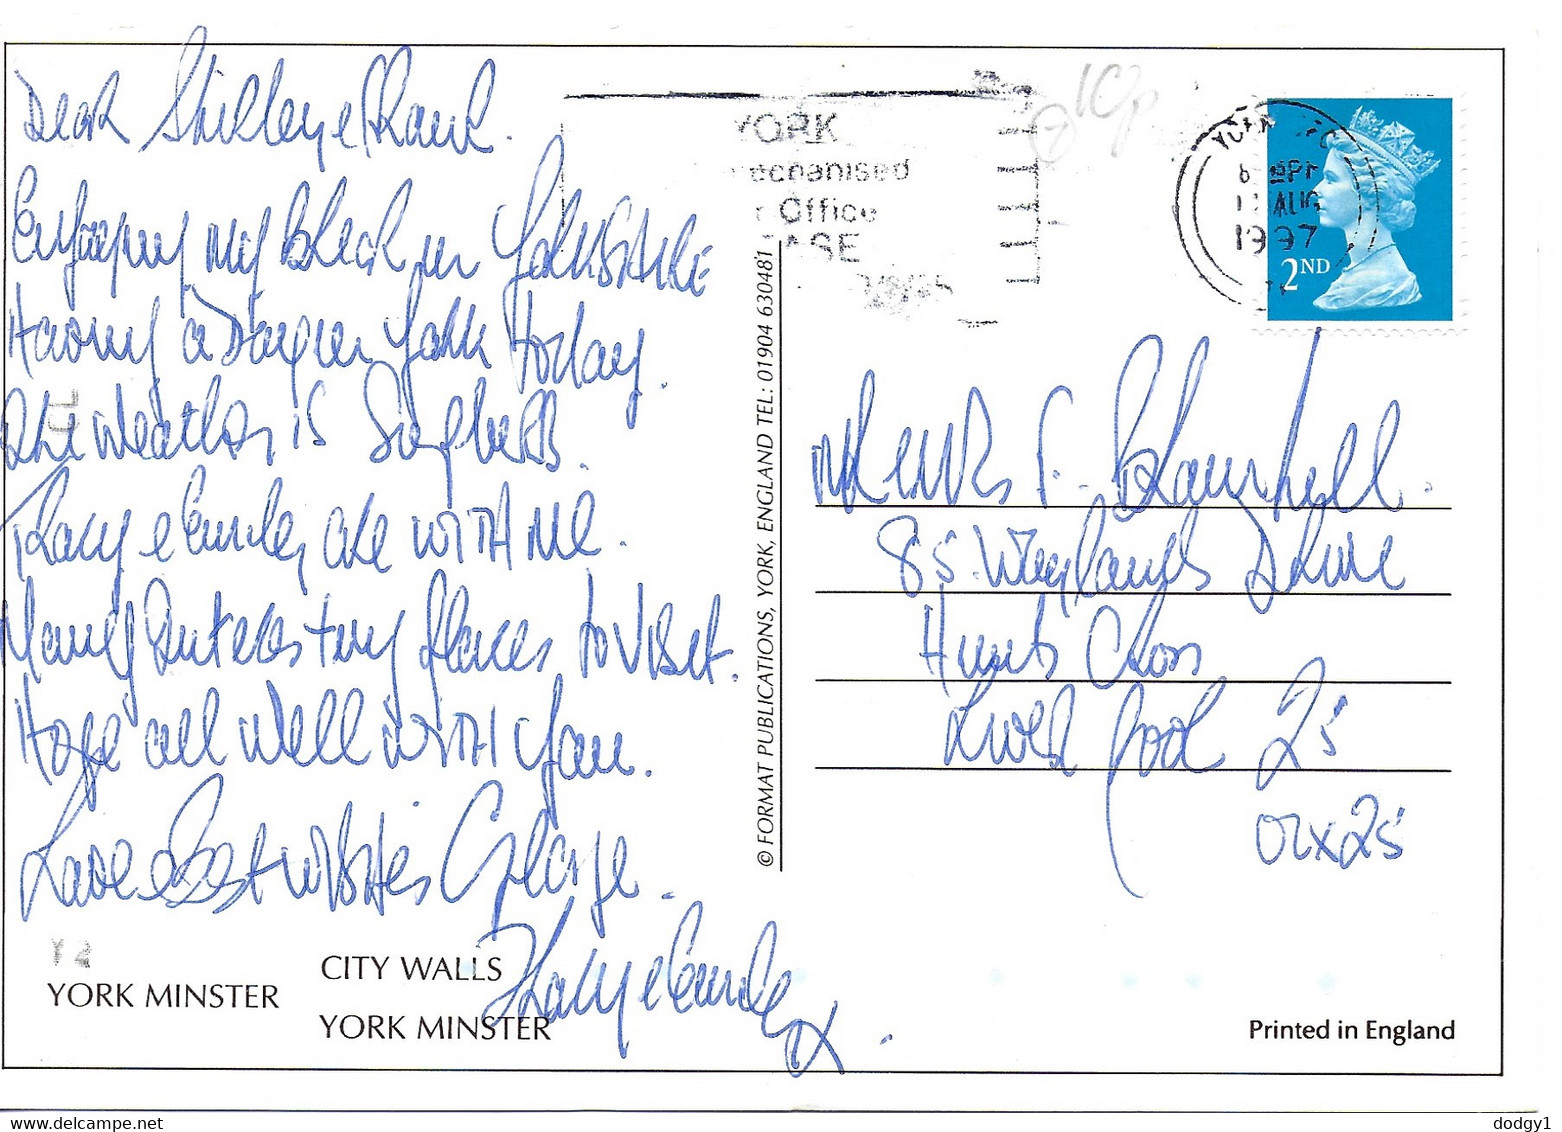 Dear Shirley & Frank.
Enjoying my break in Yorkshire
Having a Day in York today.
The weather is Superb.
Tracy & Emily are WITH ME.
Many Interesting places to visit.
Hope all Well WITH you.
Love & Best wishes George.
Tracy & Emily
x
Y 2
CITY WALLS
YORK MINSTER
YORK MINSTER
© FORMAT PUBLICATIONS, YORK, ENGLAND TEL: 01904 630481
YORK
Office
10p
AUG
1997
2ND
Mr & Mrs F.
85. Waylands Drive
Hunts Cross
Liverpool 25
Printed in England
delcampe.net
dodgy1